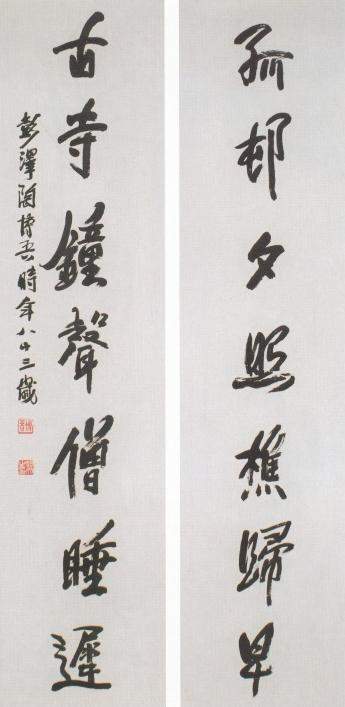 孤邨夕照樵歸早
古寺鐘聲僧睡遲
彭澤陶博吾時年八十三歲